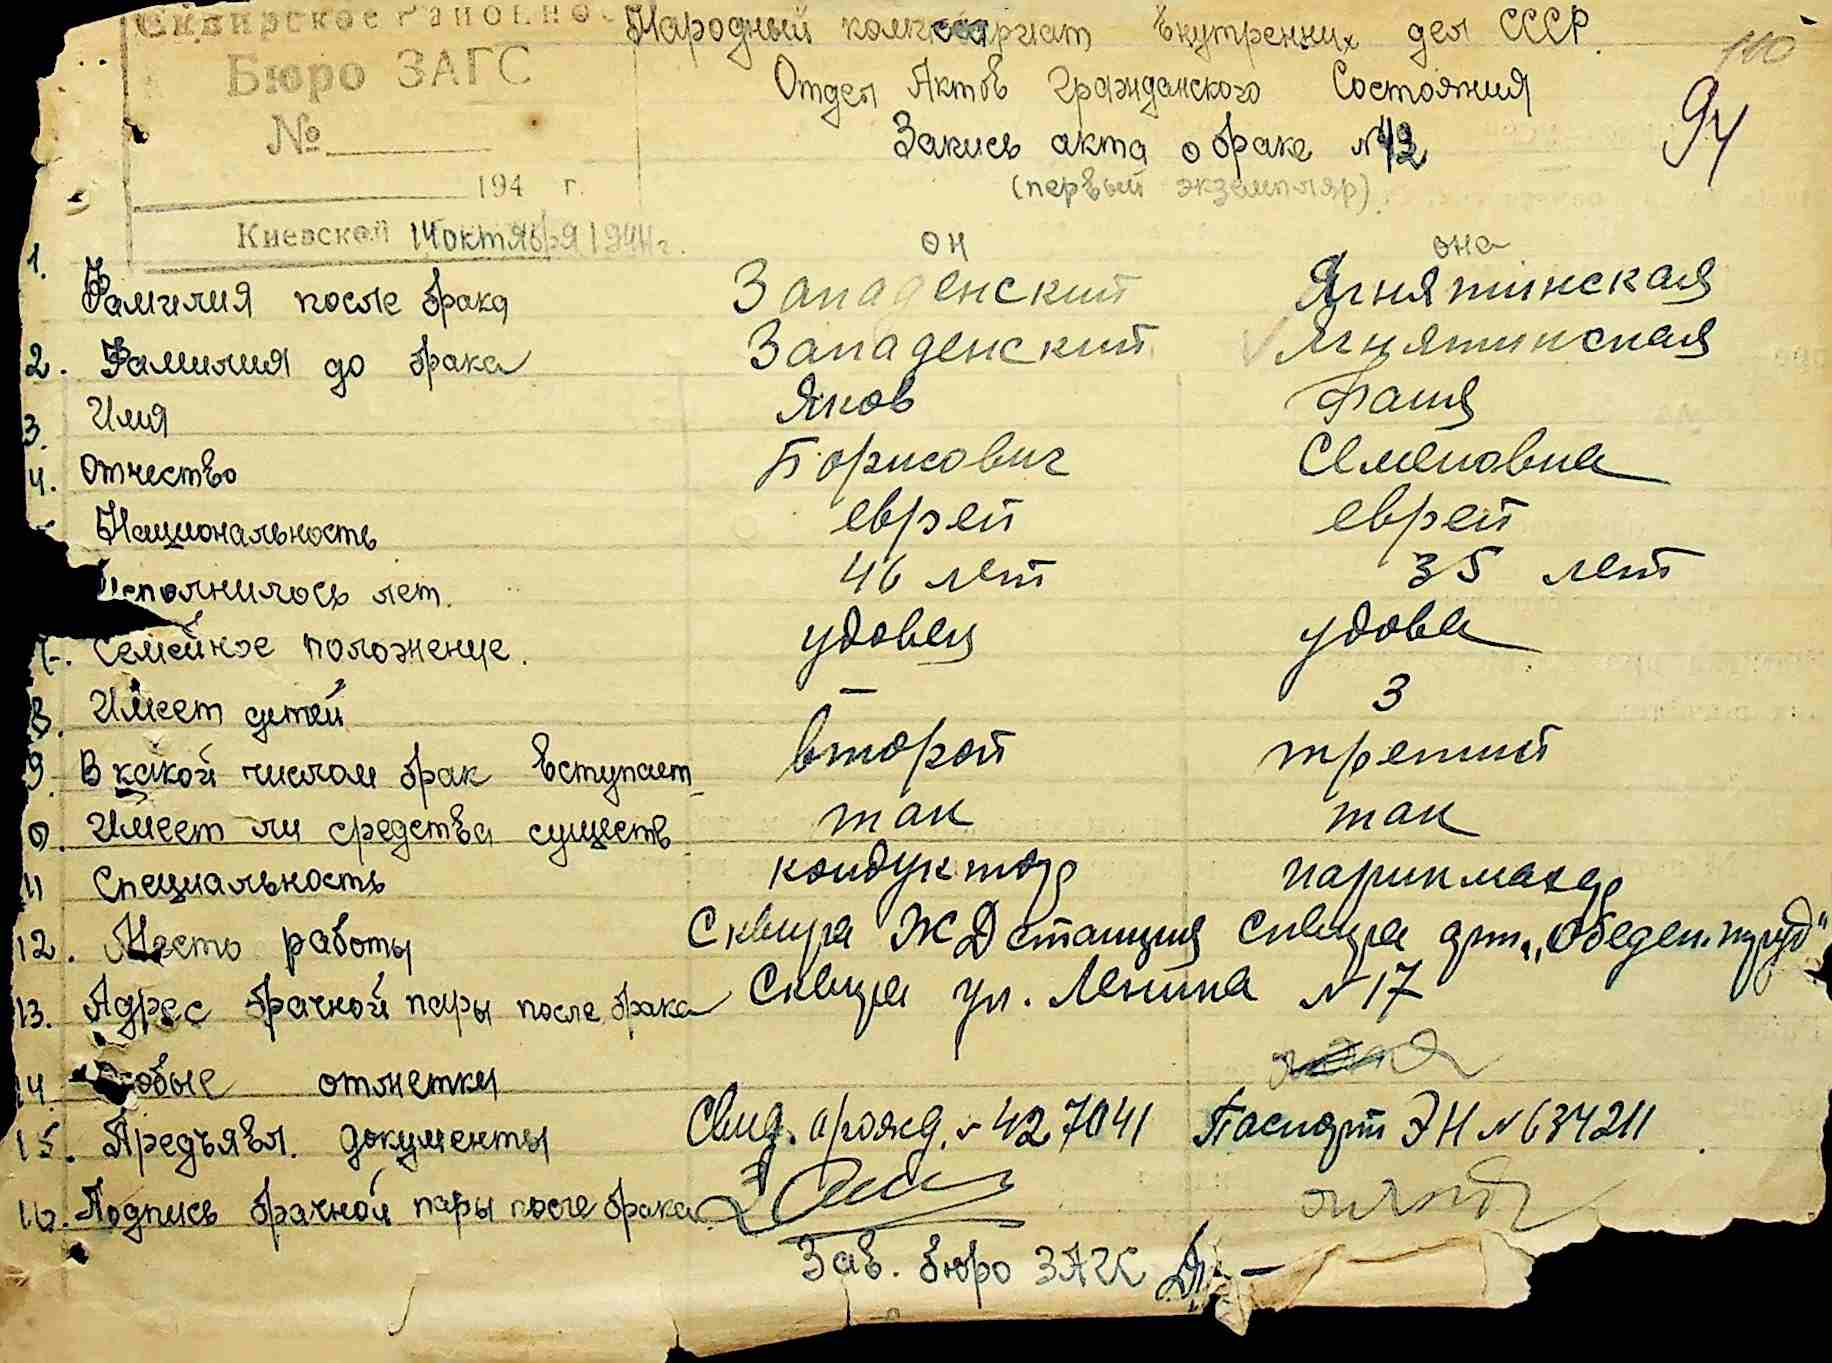 Сквирское Районно
Бюро ЗАГС
№
194 г.
Киевской 14 октября 1944 г.
Народный комиссариат Внутренних дел СССР.
Отдел Актов Гражданского Состояния
Запись акта о браке №42
(первый экземпляр).
94
он она
1. Фамилия после брака Западенский Ягнятинская
2. Фамилия до брака Западенский Ягнятинская
3. Имя Яков Фаня
4. Отчество Борисович Семеновна
Национальность еврей еврей
Исполнилось лет. 46 лет 35 лет
7. Семейное положение. удовец удова
8. Имеет детей — 3
9. В какой числом брак вступает второй третий
0. Имеет ли средства существ. так так
11 Специальность кондуктор парикмахер
12. Место работы Сквира ЖД станция Сквира арт. „Объеден. труд"
13. Адрес брачной пары после брака Сквира ул. Ленина №17
14. собые отметки
15. Предъявл. документы Свид. о рожд. № 427041 Паспорт ЭН №634211
16. Подпись брачной пары после брака
Зав. бюро ЗАГС